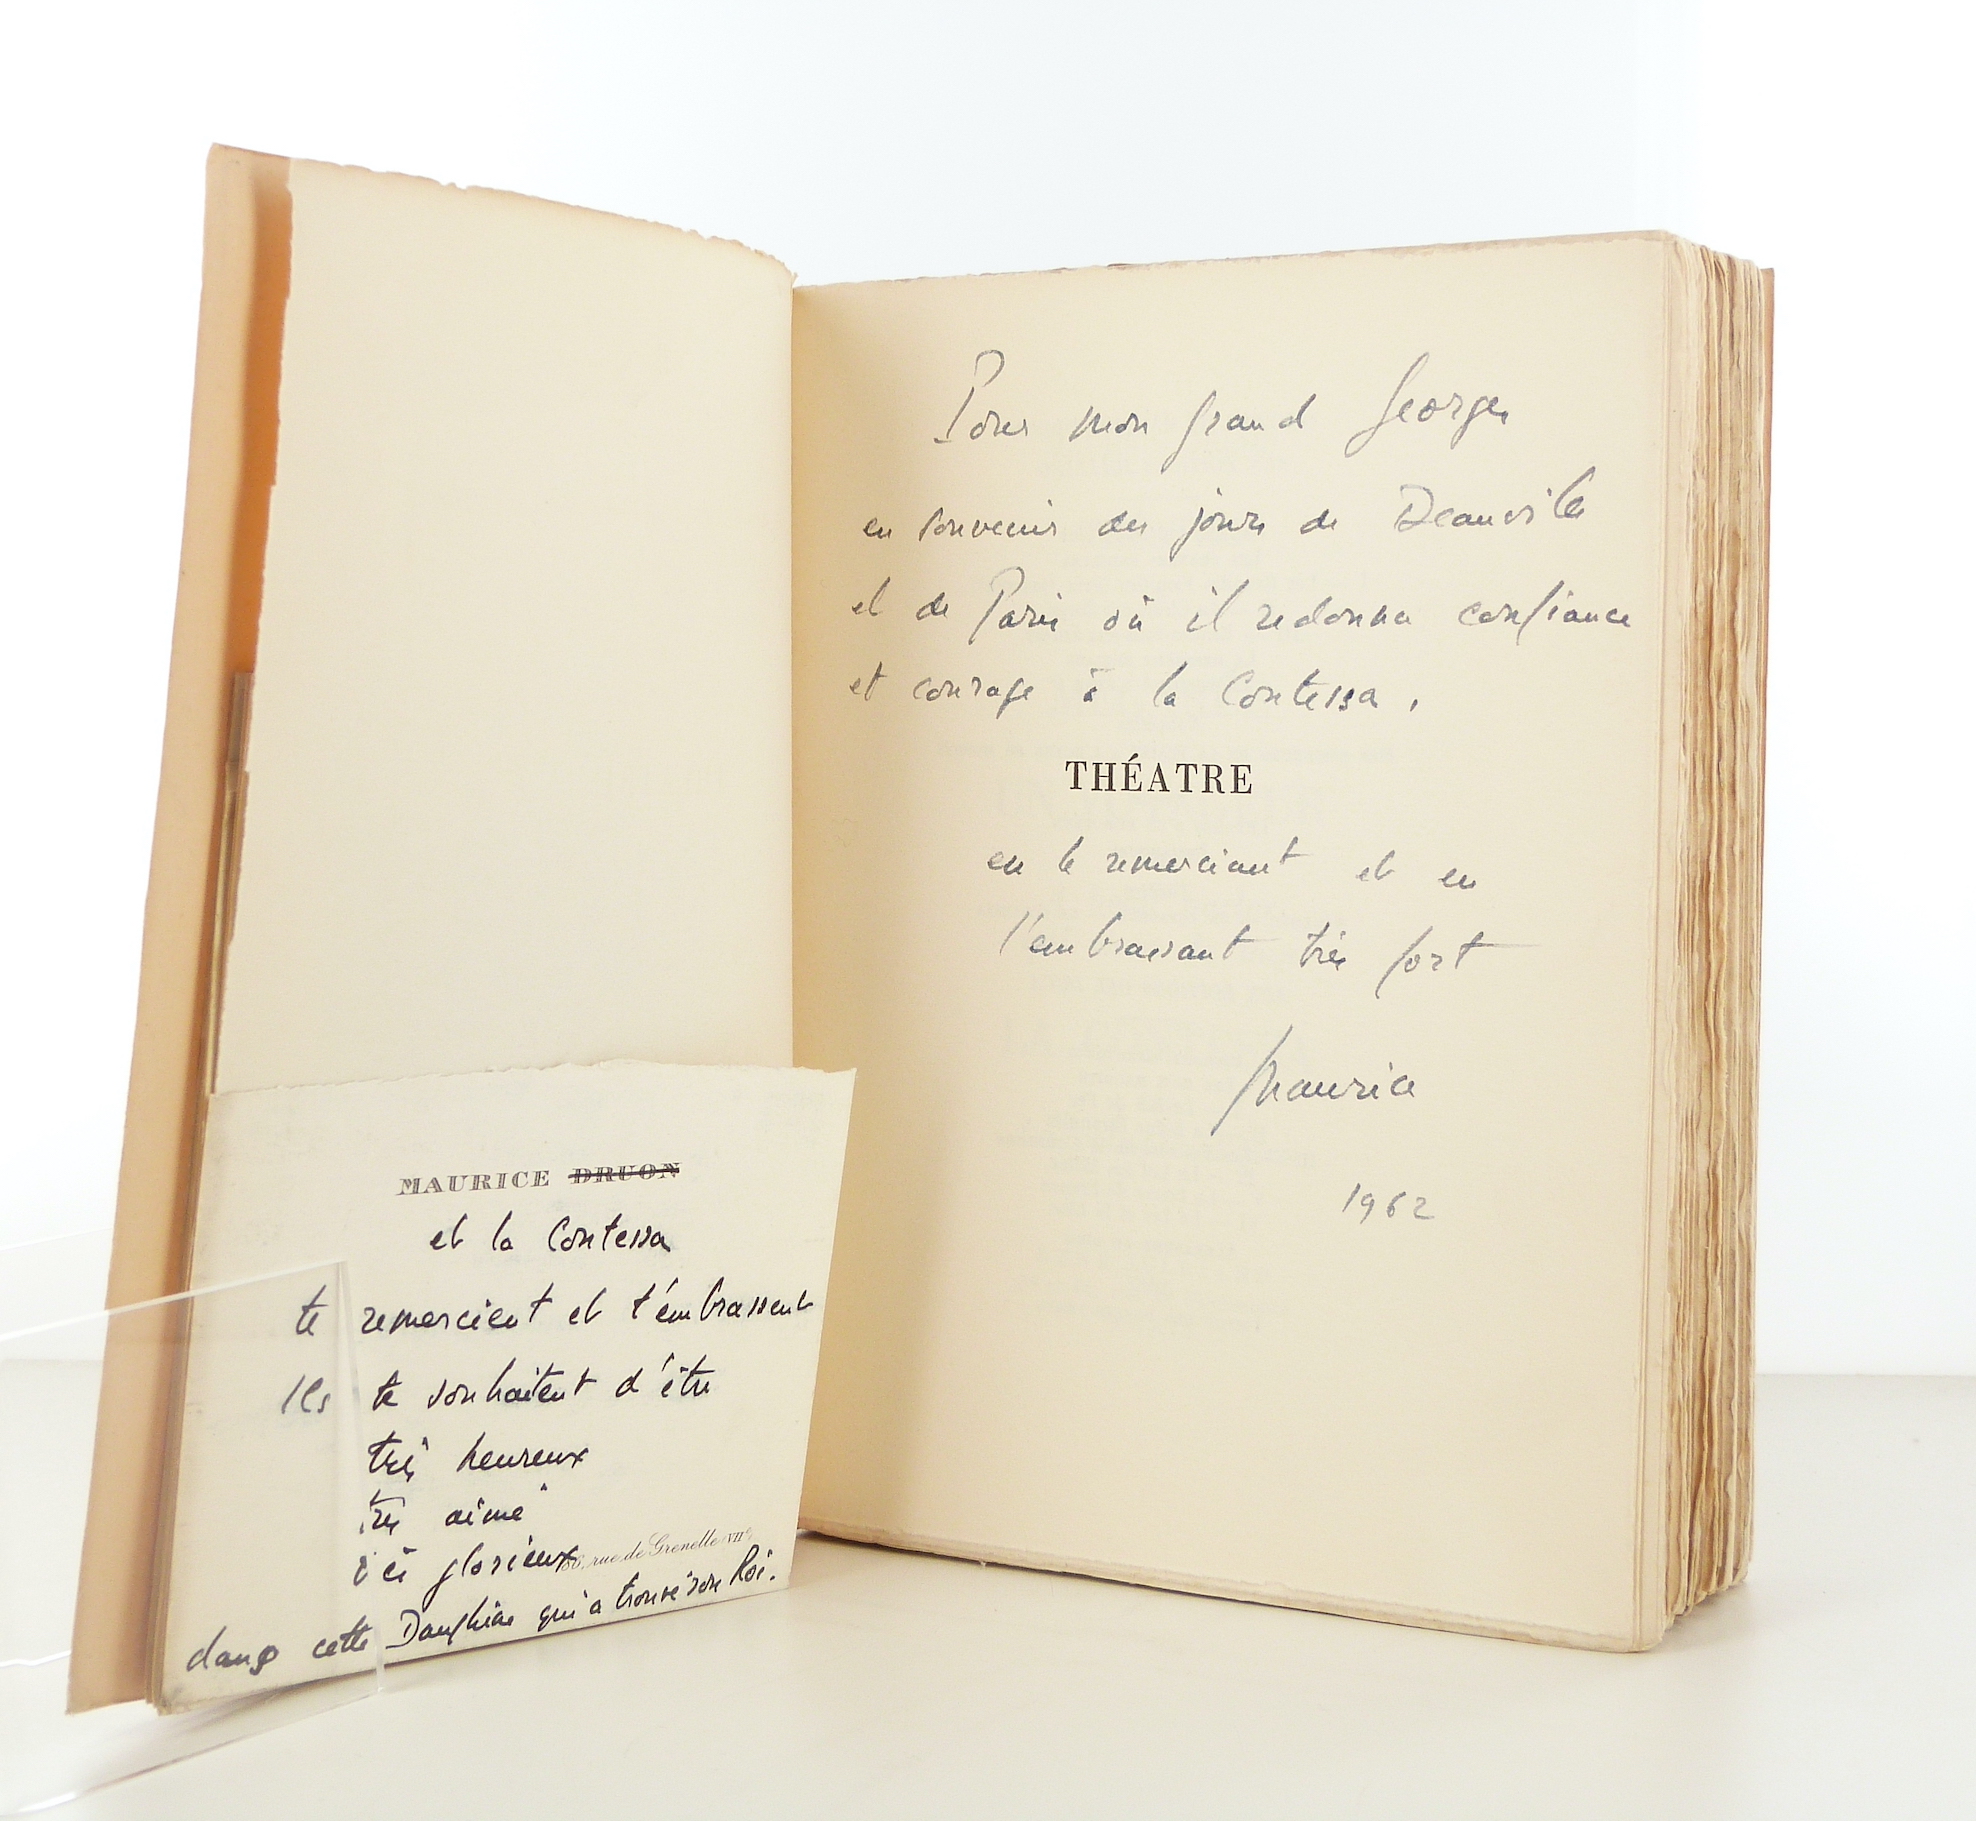 Pour mon grand Georges
en souvenir des jours de Deauville
et de Paris où il redonna confiance
et courage à la Contessa,
THÉATRE
en le remerciant et en
l'embrassant très fort
Maurice
1962
MAURICE DRUON
et la Contessa
te remercient et t'embrassent
Ils te souhaitent d'être
très heureux
très aimé
très glorieux
rue de Grenelle VIIe
dans cette Dauphine qui a trouvé son Roi.